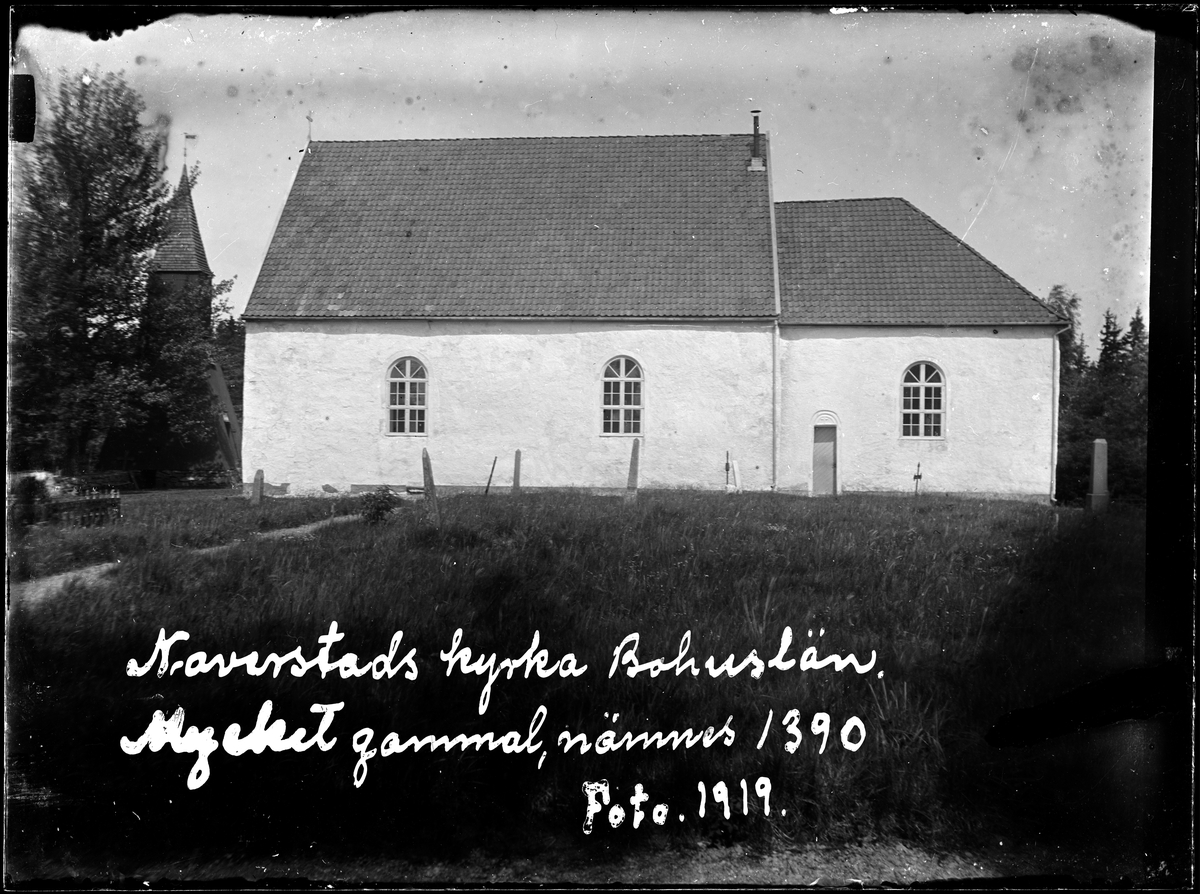 Naverstads kyrka Bohuslän.
Mycket gammal, nämnes 1390
Foto. 1919.